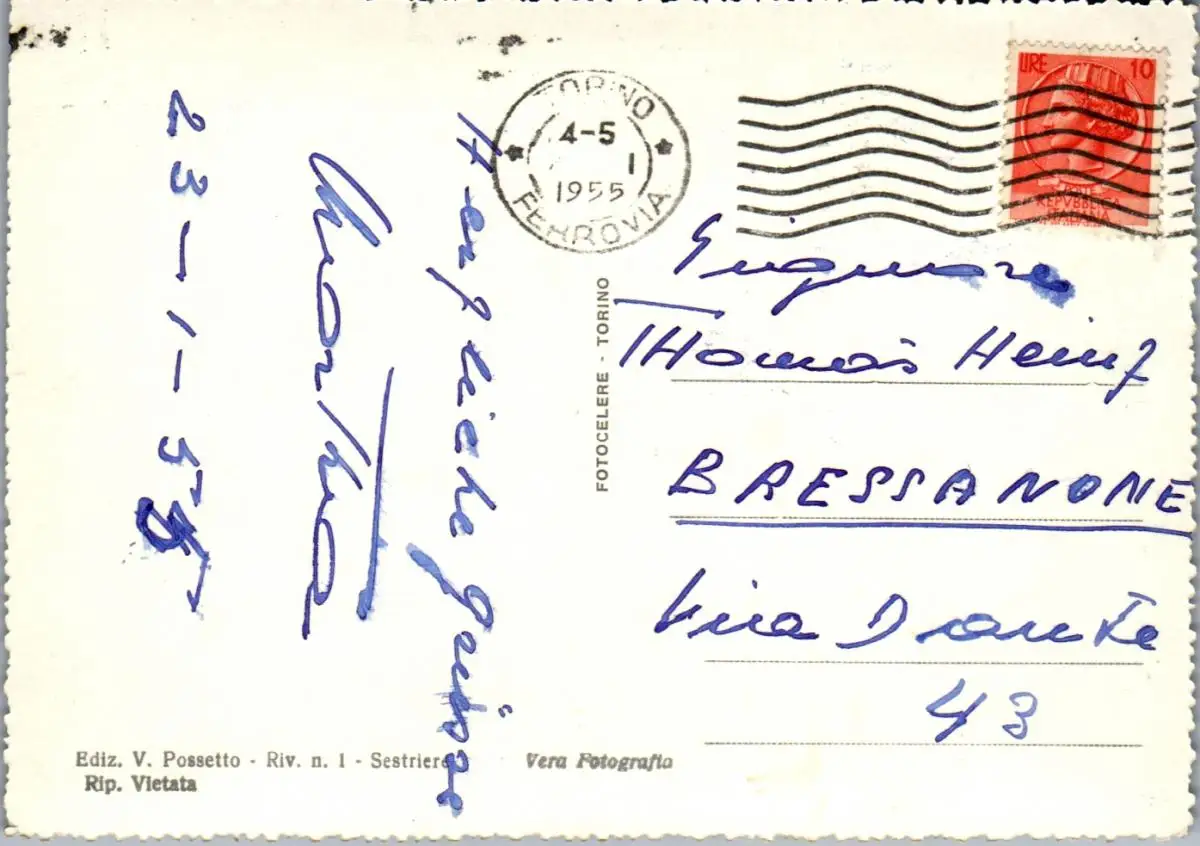 Herzliche Grüsse
Martha
23-1-55
TORINO
4-5
1
1955
FERROVIA
LIRE 10
REPVBBLICA
ITALIANA
FOTOCELERE - TORINO
Signore
THomas Heinz
BRESSANONE
Via Dante
43
Ediz. V. Possetto - Riv. n. 1 - Sestriere
Vera Fotografia
Rip. Vietata